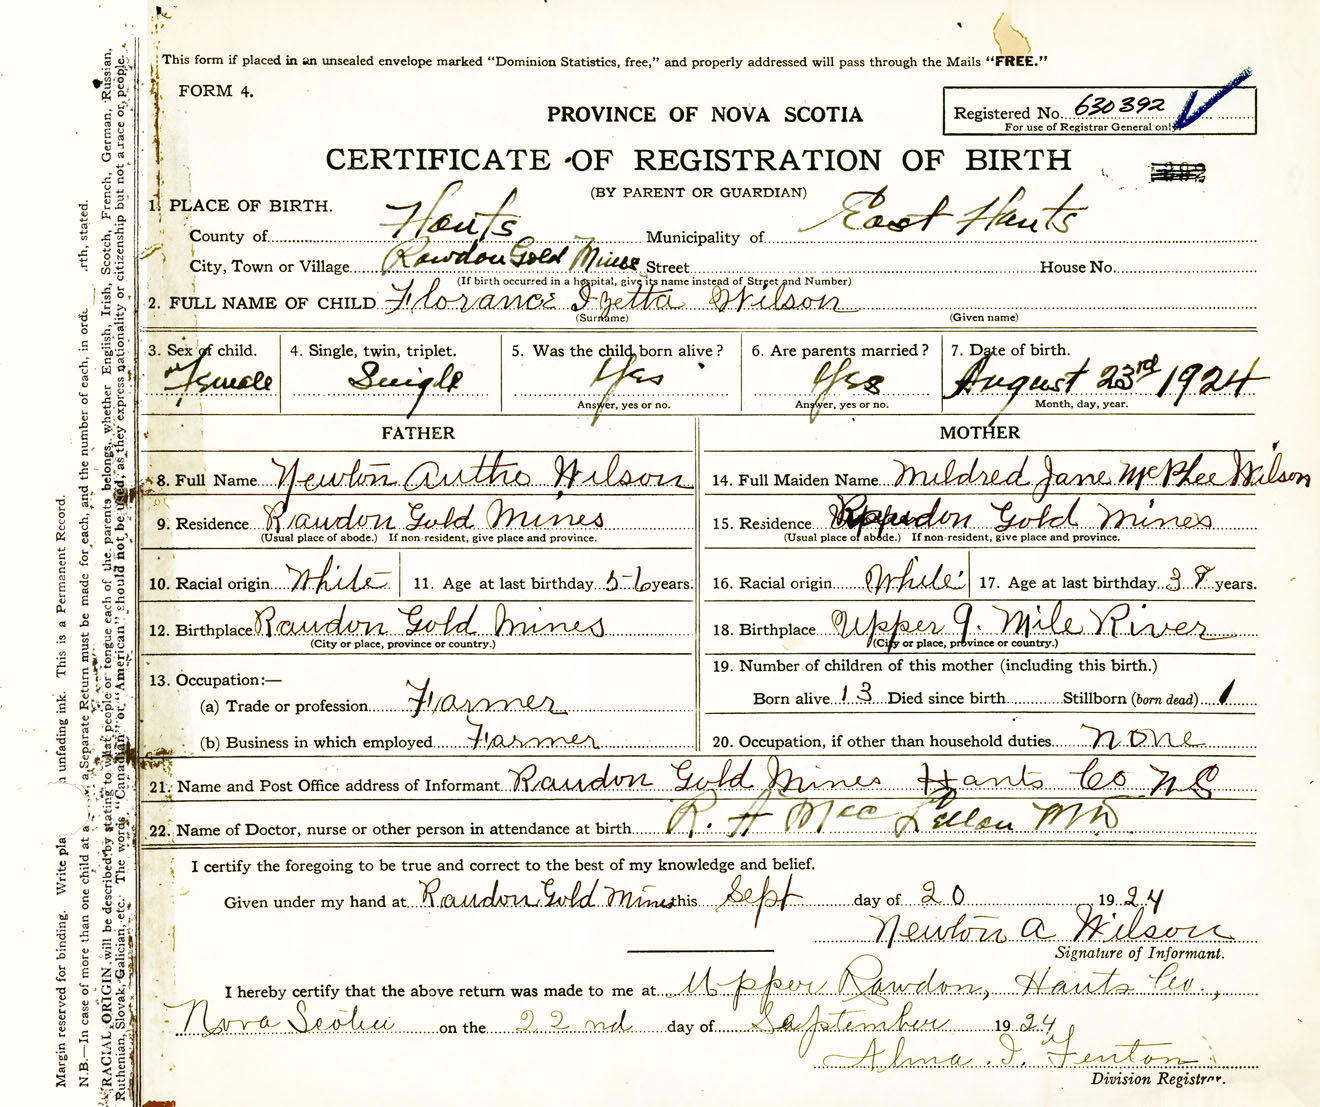 This form if placed in an unsealed envelope marked "Dominion Statistics, free," and properly addressed will pass through the Mails "FREE."
FORM 4.
Registered No. 630392
For use of Registrar General only
PROVINCE OF NOVA SCOTIA
CERTIFICATE OF REGISTRATION OF BIRTH
(BY PARENT OR GUARDIAN)
1. PLACE OF BIRTH.
County of Hants Municipality of East Hants
City, Town or Village Rawdon Gold Mines Street House No.
(If birth occurred in a hospital, give its name instead of Street and Number)
2. FULL NAME OF CHILD Florance Izetta Wilson
(Surname) (Given name)
3. Sex of child. 4. Single, twin, triplet. 5. Was the child born alive? 6. Are parents married? 7. Date of birth.
Female Single Yes Yes August 23rd 1924
Answer, yes or no. Answer, yes or no. Month, day, year.
FATHER MOTHER
8. Full Name Newton Wilson 14. Full Maiden Name Mildred Jane McPhee Wilson
9. Residence Raudon Gold Mines 15. Residence Raudon Gold Mines
(Usual place of abode.) If non-resident, give place and province. (Usual place of abode.) If non-resident, give place and province.
10. Racial origin White 11. Age at last birthday 56 years. 16. Racial origin White 17. Age at last birthday 38 years.
12. Birthplace Raudon Gold Mines 18. Birthplace Upper 9. Mile River
(City or place, province or country.) (City or place, province or country.)
13. Occupation:— 19. Number of children of this mother (including this birth.)
(a) Trade or profession Farmer Born alive 13 Died since birth Stillborn (born dead) 1
(b) Business in which employed Farmer 20. Occupation, if other than household duties none
21. Name and Post Office address of Informant Raudon Gold Mines Hants Co NS
22. Name of Doctor, nurse or other person in attendance at birth R. A MacLellan MD
I certify the foregoing to be true and correct to the best of my knowledge and belief.
Given under my hand at Raudon Gold Mines this Sept day of 20 1924
Newton A Wilson
Signature of Informant.
I hereby certify that the above return was made to me at Upper Rawdon, Hants Co.,
Nova Scotia on the 22nd day of September 1924
Alma I. Fenton
Division Registrar.
Margin reserved for binding. Write unfading ink. This is a Permanent Record.
N.B.—In case of more than one child at a Separate Return must be made for each, and the number of each, in stated.
RACIAL ORIGIN will be described by stating to what people or tongue each of the parents belongs, whether English, Irish, Scotch, French, German, Russian,
Ruthenian, Slovak, Galician, etc. The words "Canadian" or "American" should not be used, as they express nationality or citizenship but not a race or people.